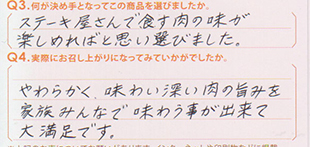 Q3.何が決め手となってこの商品を選びましたか。
ステーキ屋さんで食す肉の味が
楽しめればと思い選びました。
Q4.実際にお召し上がりになってみていかがでしたか。
やわらかく、味わい深い肉の旨みを
家族みんなで味わう事が出来て
大満足です。